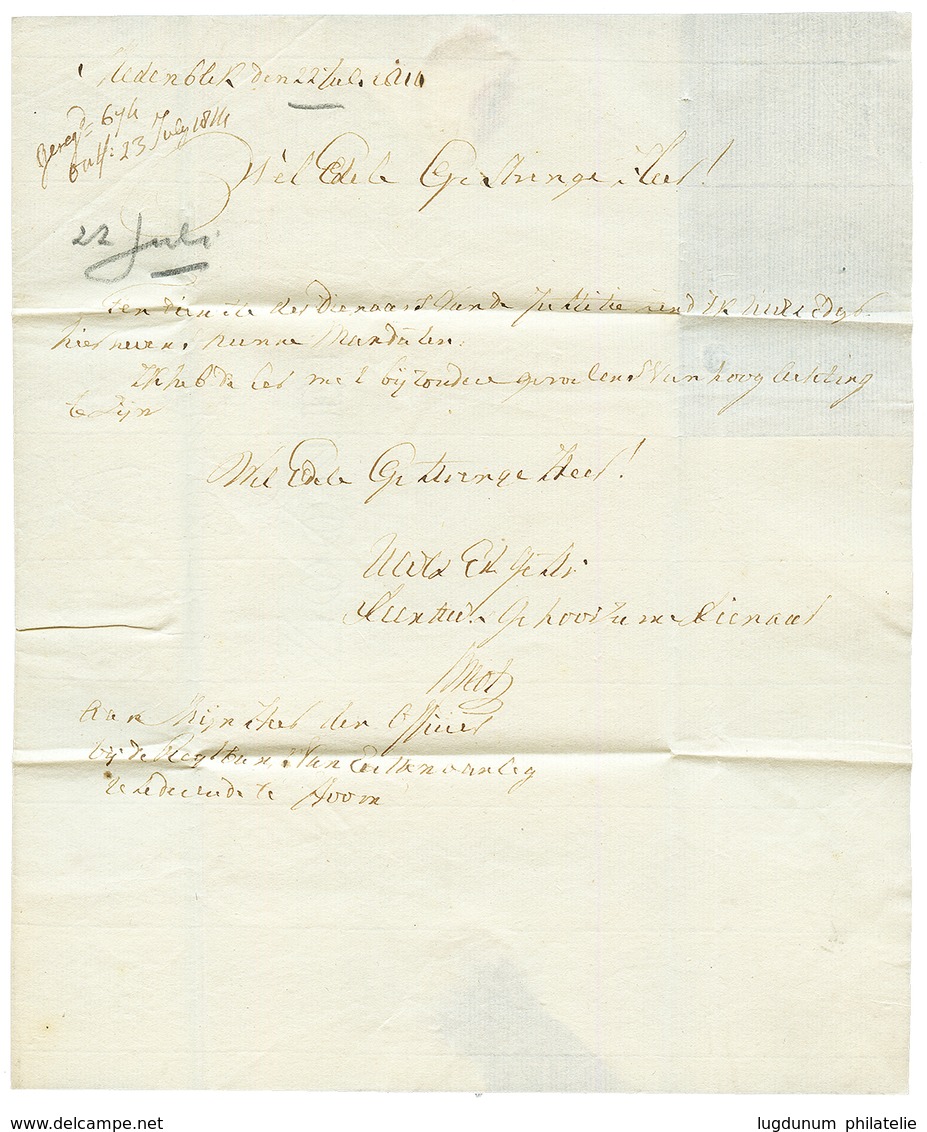 Medenblik den 22 Juli 1814
gereg^d 674
ontf: 23 July 1814
Wel Edele Gestrenge Heer!
22 Juli
Ten dienste der Dienaars van de Justitie zend Ik UWelEdg.
hier nevens hunne Mandaten.
Ik heb de Eer met bijzondere gevoelens van hoog Achting
te zijn
Wel Edele Gestrenge Heer!
UWel Ed Gestr
Gehoorzame Dienaar
Aan Mijn Heer den Officier
bij de Regtbank van Eersten aanleg
te Hoorn
www.delcampe.net
lugdunum philatelie